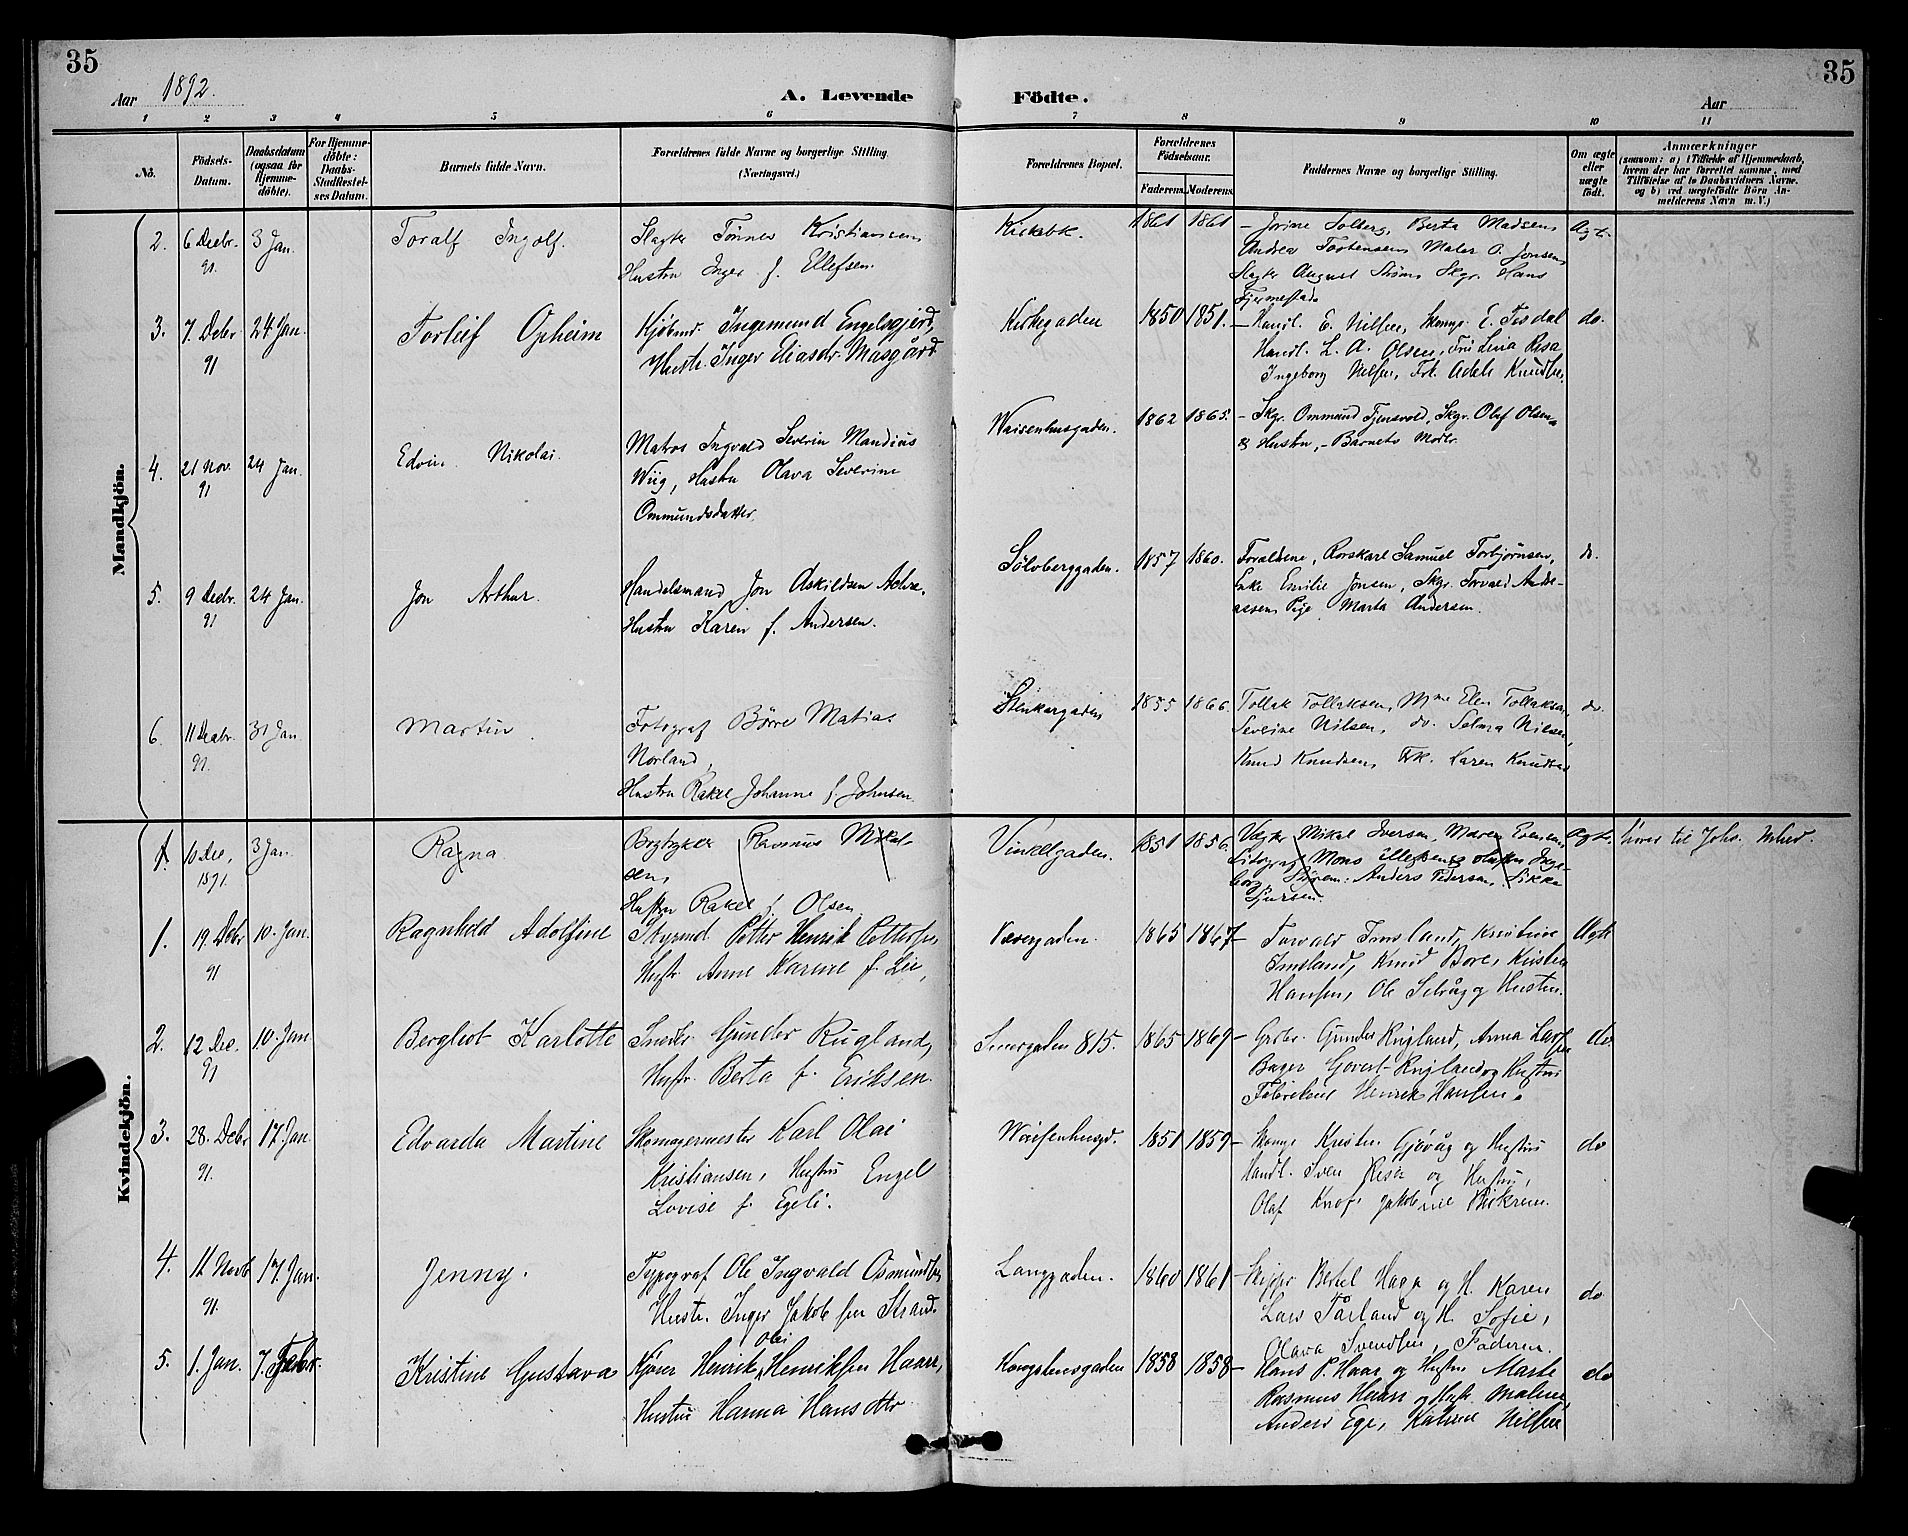 35
35
Aar 1892.
A. Levende Födte.
Aar
1 2 3 4 5 6 7 8 9 10 11
No.
Födsels-Datum.
Daabsdatum (ogsaa for Hjemme-döbte).
For Hjemme-döbte: Daabs-Stadfæstel-ses Datum.
Barnets fulde Navn.
Forældrenes fulde Navne og borgerlige Stilling. (Næringsvei.)
Forældrenes Bopæl.
Forældrenes Födselsaar.
Faderens. Moderens.
Faddernes Navne og borgerlige Stilling.
Om ægte eller uægte födt.
Anmærkninger
(saasom: a) i Tilfælde af Hjemmedaab, hvem der har forrettet samme, med Tilföielse af to Daabsvidners Navne, og b) ved uægtefödte Börn An-melderens Navn m. V.)
Mandkjön.
2. 6 Decbr. 91. 3 Jan. Toralf Ingolf.
Slagter Tönnes Kristiansen
Hustru Inger f. Ellefsen.
Kirkebk. 1861 1861
– Jorine Solberg, Berta Madsen
Andrea Torstensen Maler O. Jonsen,
Slagter August Ström Skgr. Hans
Fjermestad
Ægt.
3. 7. Debr 91 24 Jan. Torleif Opheim
Kjöbmd. Ingemund Engelsgjerd,
Hustr. Inger Eliasdr. Masgård
Kirkegaden 1850 1851.
– Handl. E. Nilsen, Skomgr. E. Tisdal
Handl. L. A. Olsen, Fru Lina Risa
Ingeborg Nilsen, Frk. Adele Knudsen.
do.
4. 21 Nov. 91 24 Jan. Edvin Nikolai.
Matros Ingvald Severin Mandius
Wiig, Hustru Olava Severine
Ommundsdatter.
Waisenhusgaden. 1862 1865.
– Skgr. Ommund Tjensvold, Skgr. Olaf Olsen
& Hustru, – Barnets Moder.
5. 9 Decbr. 91 24 Jan. Jon Arthur.
Handelsmand Jon Askildsen
Hustru Karen f. Andersen.
Sölvberggaden. 1857 1860.
Forældrene, Rorskarl Samuel Torbjörnsen,
Enke Emilie Jonsen, Skgr. Torvald Andre-
assen, Pige Marta Andersen.
do.
6. 11 Decbr. 91. 31 Jan Martin
Fotograf Börre Matias
Norland,
Hustru Rakel Johanne f. Johnsen.
Stenkargaden 1855 1866.
Tollak Tollaksen, Mme Elen Tollaksen,
Severine Nilsen, do. Selma Nilsen,
Knud Knudsen, Frk. Karen Knudsen
do.
Kvindekjön.
1. 10 Dec. 1891. 3 Jan. Ragna.
Bogtrykker Rasmus Mikal-
sen,
Hustru Rakel f. Olsen
Vinkelgaden. 1851 1856.
Vægter Mikal Iversen, Maren Evensen
Litograf Mons Ellefsen & Hustru Inge-
borg, Anders Pedersen, Sikke
Sjursen.
Ægt. hörer til Johs. Mhed.
1. 19. Debr 91 10. Jan. Ragnhild Adolfine
Styrmd. Petter Henrik Pettersen,
Hustr. Anne Karine f. Lie,
Vævergaden. 1865 1867
– Torvald Imsland, Kristine
Imsland, Knud Bore, Kristen
Hansen, Ole Selvåg og Hustru.
Ægte
2. 12 Dec. 91 10. Jan Bergliot Karlotte
Snedkr Gunder Rugland,
Hustr. Berta f. Eriksen.
815. 1865 1869
– Garbr. Gunder Rugland, Anna Larsen
Bager Govert Rugland og Hustru
Fabrikent Henrik Hansen.
do.
3. 28. Debr 91. 17. Jan. Edvarda Martine
Skomagermester Karl Olai
Kristiansen, Hustru Engel
Lovise f. Egeli.
Waisenhusgd. 1851 1859
– Skomgr Kristen Gjövåg og Hustru
Handl. Sven Risa og Hustru,
Olaf Knof, Jakobine Birkrem.
do
4. 11 Novb 91. 17. Jan. Jenny.
Typograf Ole Ingvald Osmundsen
Hustr. Inger Jakobsen Strand.
Langgaden. 1860 1861
– Skipper Bertel Haga og H. Karen
Lars Tårland og H. Sofie,
Olava Svendsen, Faderen.
do
5. 1. Jan. 7. Febr. Kristine Gustava
Kjörer Henrik Olai Henriksen Haar,
Hustru Hanna Hansdtr.
Kongstensgaden 1858 1858
– Hans P. Haar og Hustru Marte
Rasmus Haar og Hustr. Maline
Anders Ege, Katrine Nilsen
do